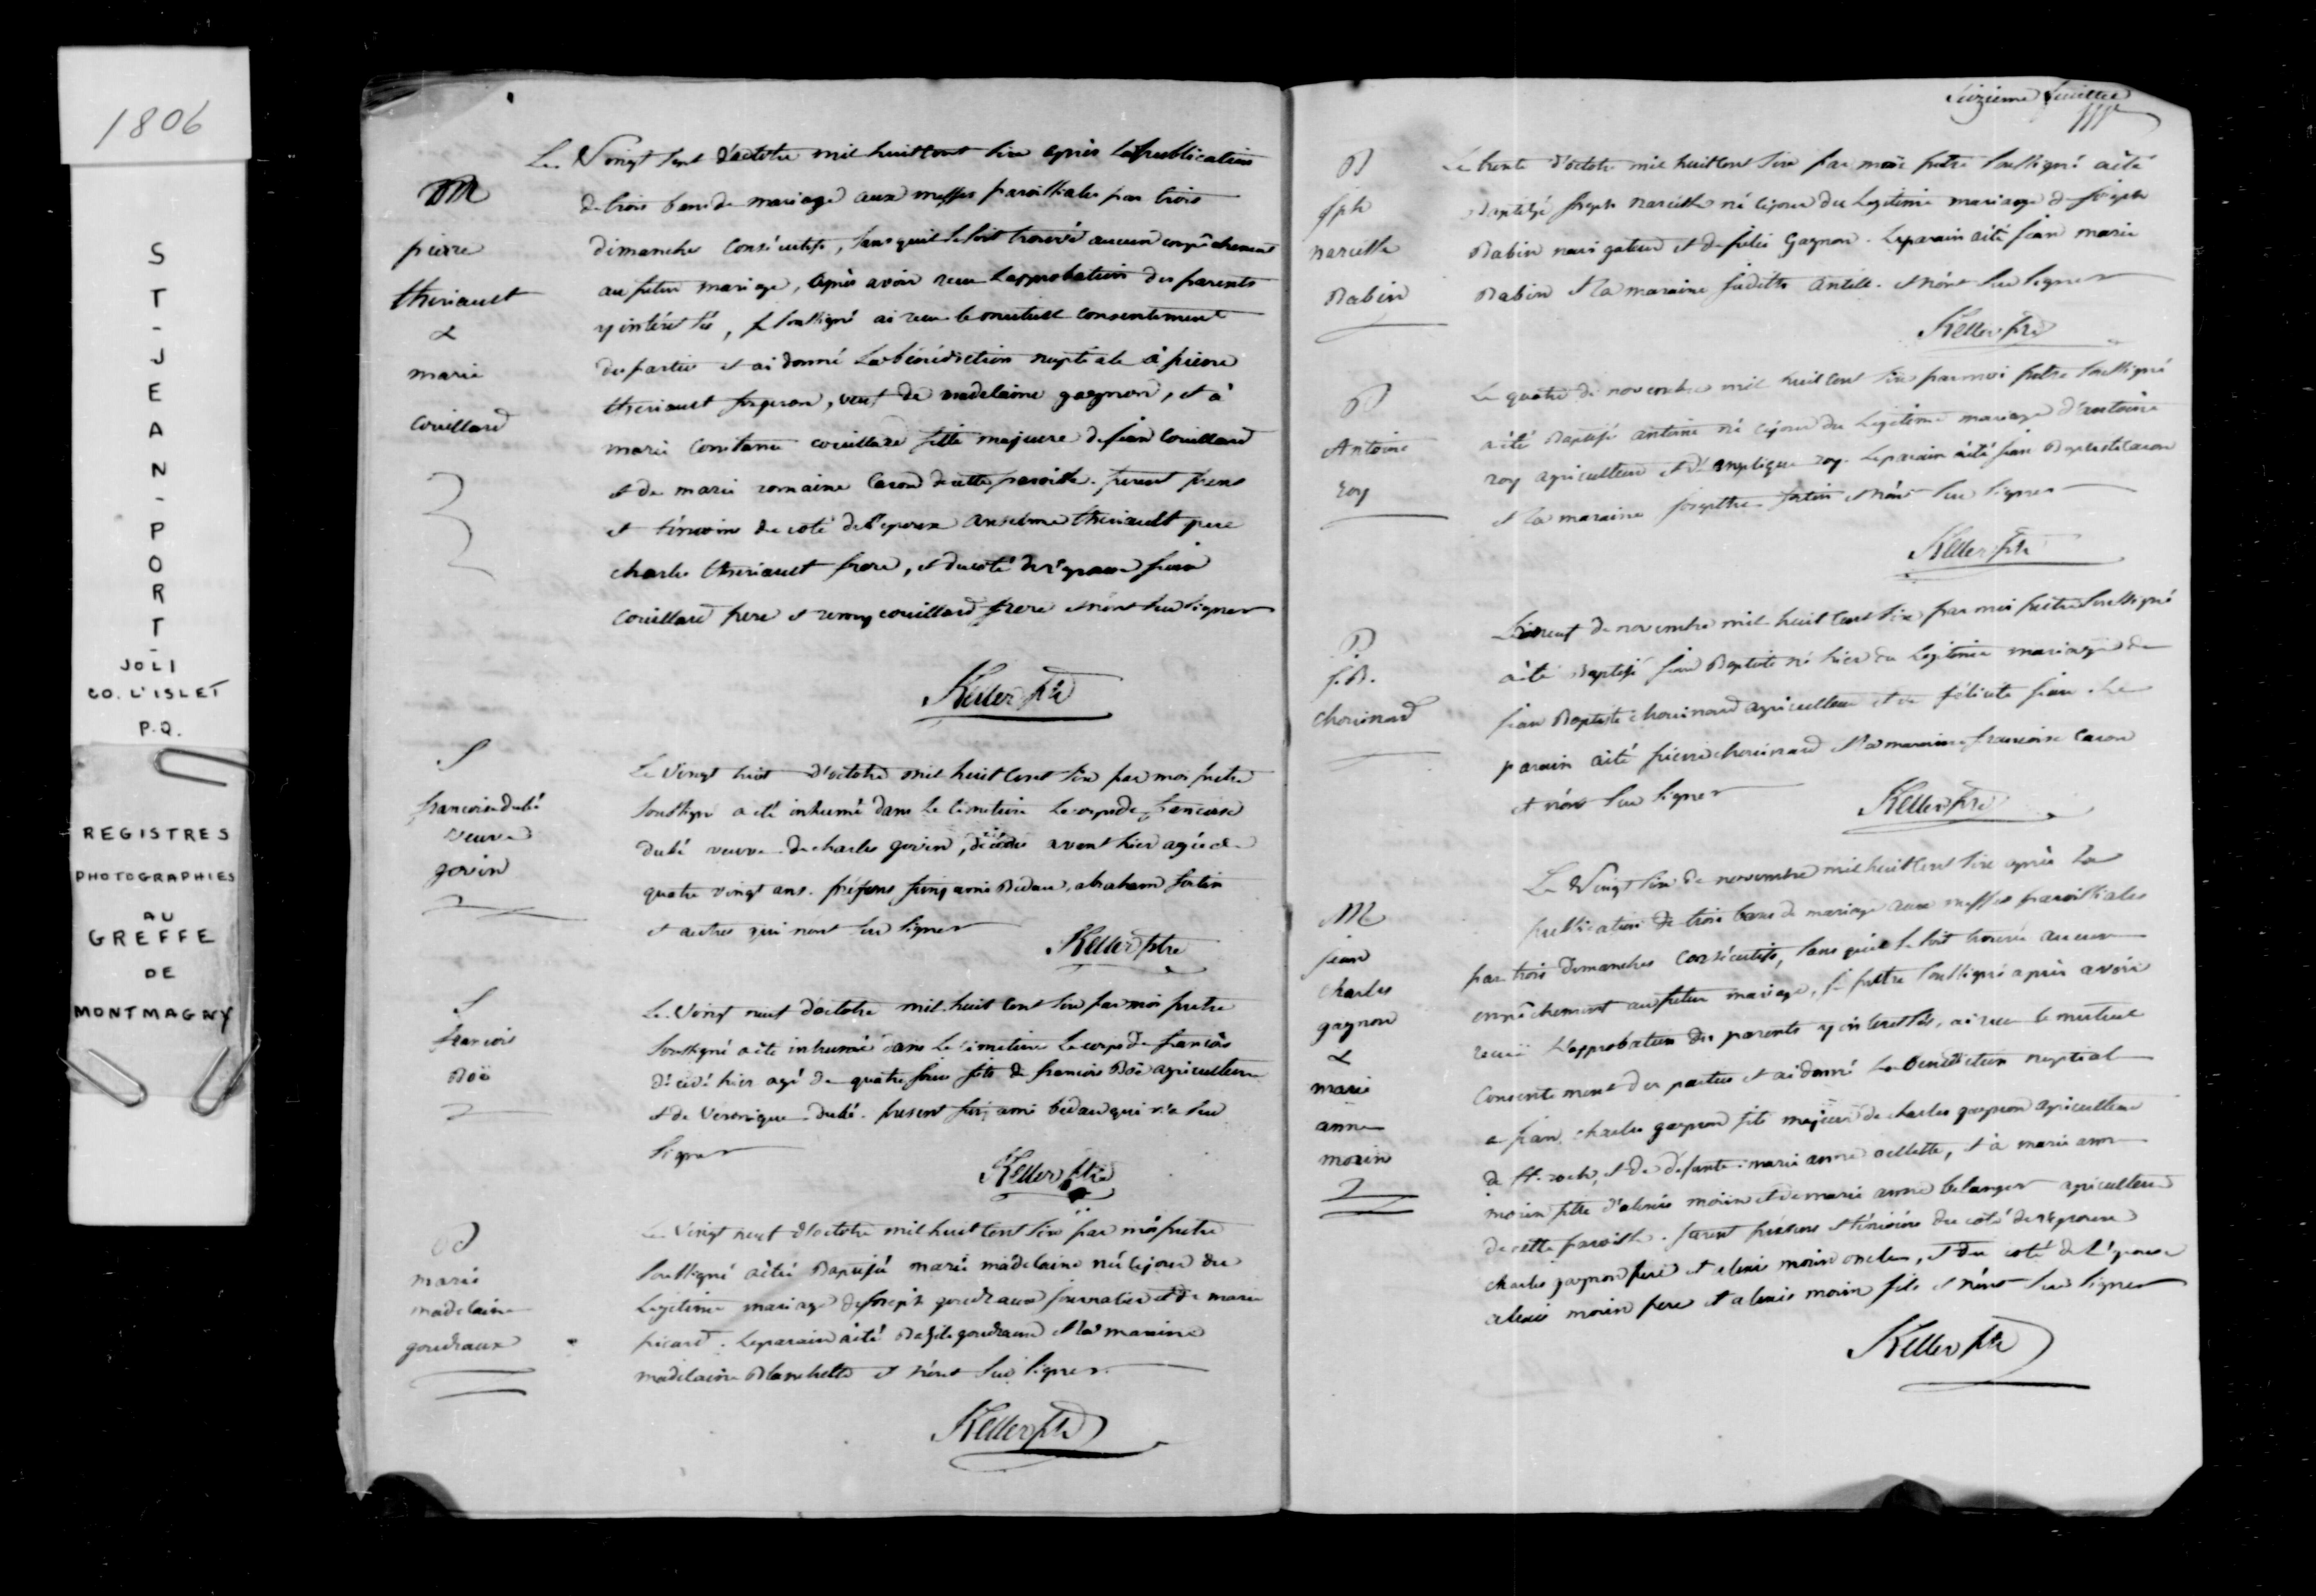 1806
ST-JEAN-PORT-
JOLI
CO. L'ISLET
P.Q.
REGISTRES
PHOTOGRAPHIES
AU
GREFFE
DE
MONTMAGNY
M
pierre
theriault
&
marie
couillard
Le Vingt sept d'octobre mil huit cent six après la publication
de trois bans de mariage aux messes paroissiales par trois
dimanches consécutifs, sans quil se soit trouvé aucun empêchement
au futur mariage, après avoir reçu l'approbation des parents
y intéressés, je soussigné ai reçu le mutuel consentement
des parties et ai donné la bénédiction nuptiale à pierre
theriault forgeron, veuf de madelaine gagnon, et à
marie Constance couillard fille majeure de jean Couillard
et de marie romaine Caron de cette paroisse. furent presens
et témoins du coté de l'epoux anselme theriault pere
charles theriault frere, et du coté de l'epouse jean
Couillard pere et remy couillard frere et n'ont su signer
Keller ptre
S
francoise dubé
veuve
govin
Le Vingt huit d'octobre mil huit cent six par moi pretre
soussigné a été inhumé dans le cimetiere le corps de francoise
dubé veuve de charles govin, décédée avant hier agée de
quatre vingt ans. présens Bedau, abraham fortin
et autres qui nont su signer
Keller ptre
S
francois
Boë
Le Vingt neuf d'octobre mil huit cent six par moi pretre
soussigné a été inhumé dans le cimetiere le corps de francois
décédé hier agé de quatre fils de francois Boë agriculteur
et de Veronique dubé. present bedau qui n'a su
signer
Keller ptre
B
marie
madelaine
goudraux
Le Vingt neuf d'octobre mil huit cent six par moi pretre
soussigné a été Baptisé marie madelaine né ce jour du
Legitime mariage de joseph goudraux journalier et de marie
picard. Le parain a été Basile goudraux et la maraine
madelaine Blanchette et n'ont su signer.
Keller ptre
Seizieme feuillet
B
jph
narcisse
Babin
Le trente d'octobre mil huit cent six par moi pretre soussigné a été
Baptisé joseph narcisse né ce jour du Legitime mariage de joseph
Babin navigateur et de Gagnon. Le parain a été jean marie
Babin et la maraine judithe et n'ont su signer
Keller ptre
B
Antoine
roy
Le quatre de novembre mil huit cent six par moi pretre soussigné
a été Baptisé antoine né ce jour du Legitime mariage d'antoine
roy agriculteur et d'angelique roy. Le parain a été jean Baptiste Caron
et la maraine josepthe fortin et n'ont su signer
Keller ptre
B
J.B.
chouinard
Le neuf de novembre mil huit cent six par moi pretre soussigné
a été Baptisé jean Baptiste né hier du Legitime mariage de
jean Baptiste chouinard agriculteur et de félicité jean. Le
parain a été pierre chouinard et la maraine francoise Caron
et n'ont su signer
Keller ptre
M
jean
charles
gagnon
&
marie
anne
morin
Le Vingt six de novembre mil huit cent six après la
publication de trois bans de mariage aux messes paroissiales
par trois dimanches consécutifs, sans quil se soit trouvé aucun
empêchement au futur mariage, je pretre soussigné après avoir
reçu l'approbation des parents y interessés, ai reçu le mutuel
consentement des parties et ai donné la bénédiction nuptial
a jean charles gagnon fils majeur de charles gagnon agriculteur
de St. roch, et de défunte marie anne ouellette, et à marie anne
morin fille d'alexis morin et de marie anne belanger agriculteur
de cette paroisse. furent présens et témoins du coté de l'epoux
charles gagnon pere et alexis morin oncles, et du coté de l'epouse
alexis morin pere et alexis morin fils et n'ont su signer
Keller ptre